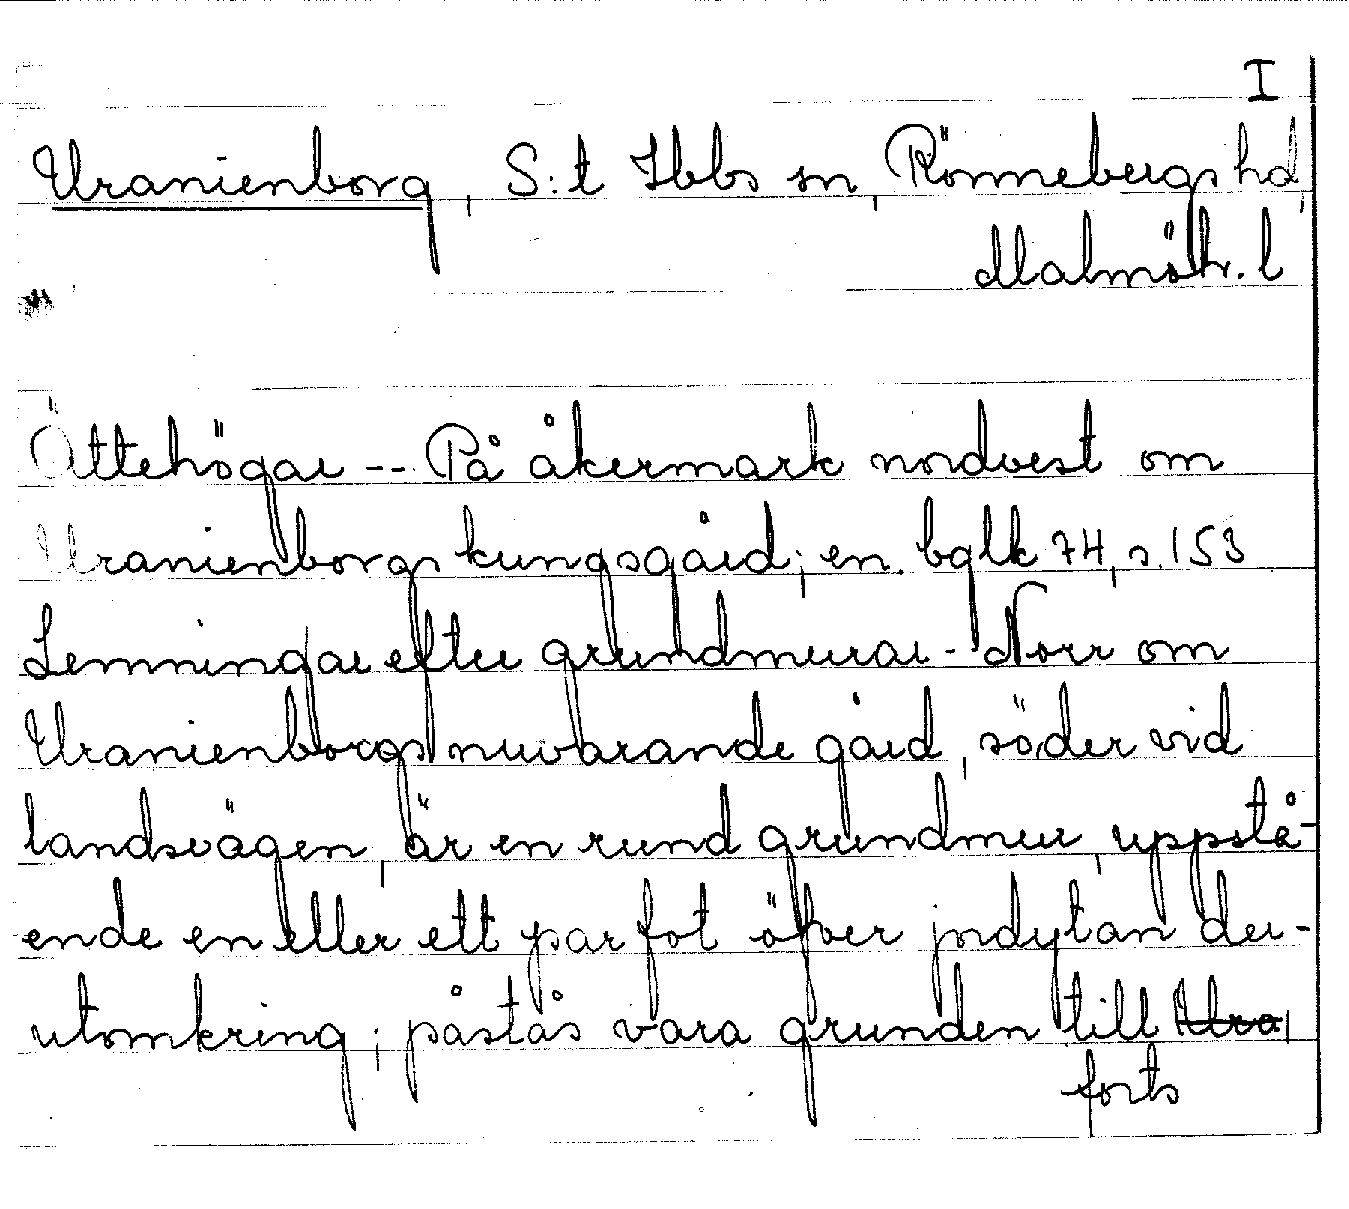 I
Uranienborg, S:t Ibbs sn, Rönnebergs hd,
Malmöh. l
Ättehögar -- På åkermark nordvest om
Uranienborgs kungsgård; en. bglk 74, s. 153
Lemningar efter grundmurar - Norr om
Uranienborgs nuvarande gård, söder vid
landsvägen, är en rund grundmur, uppstå-
ende en eller ett par fot öfver jordytan der-
utomkring; påstås vara grunden till Ura
forts